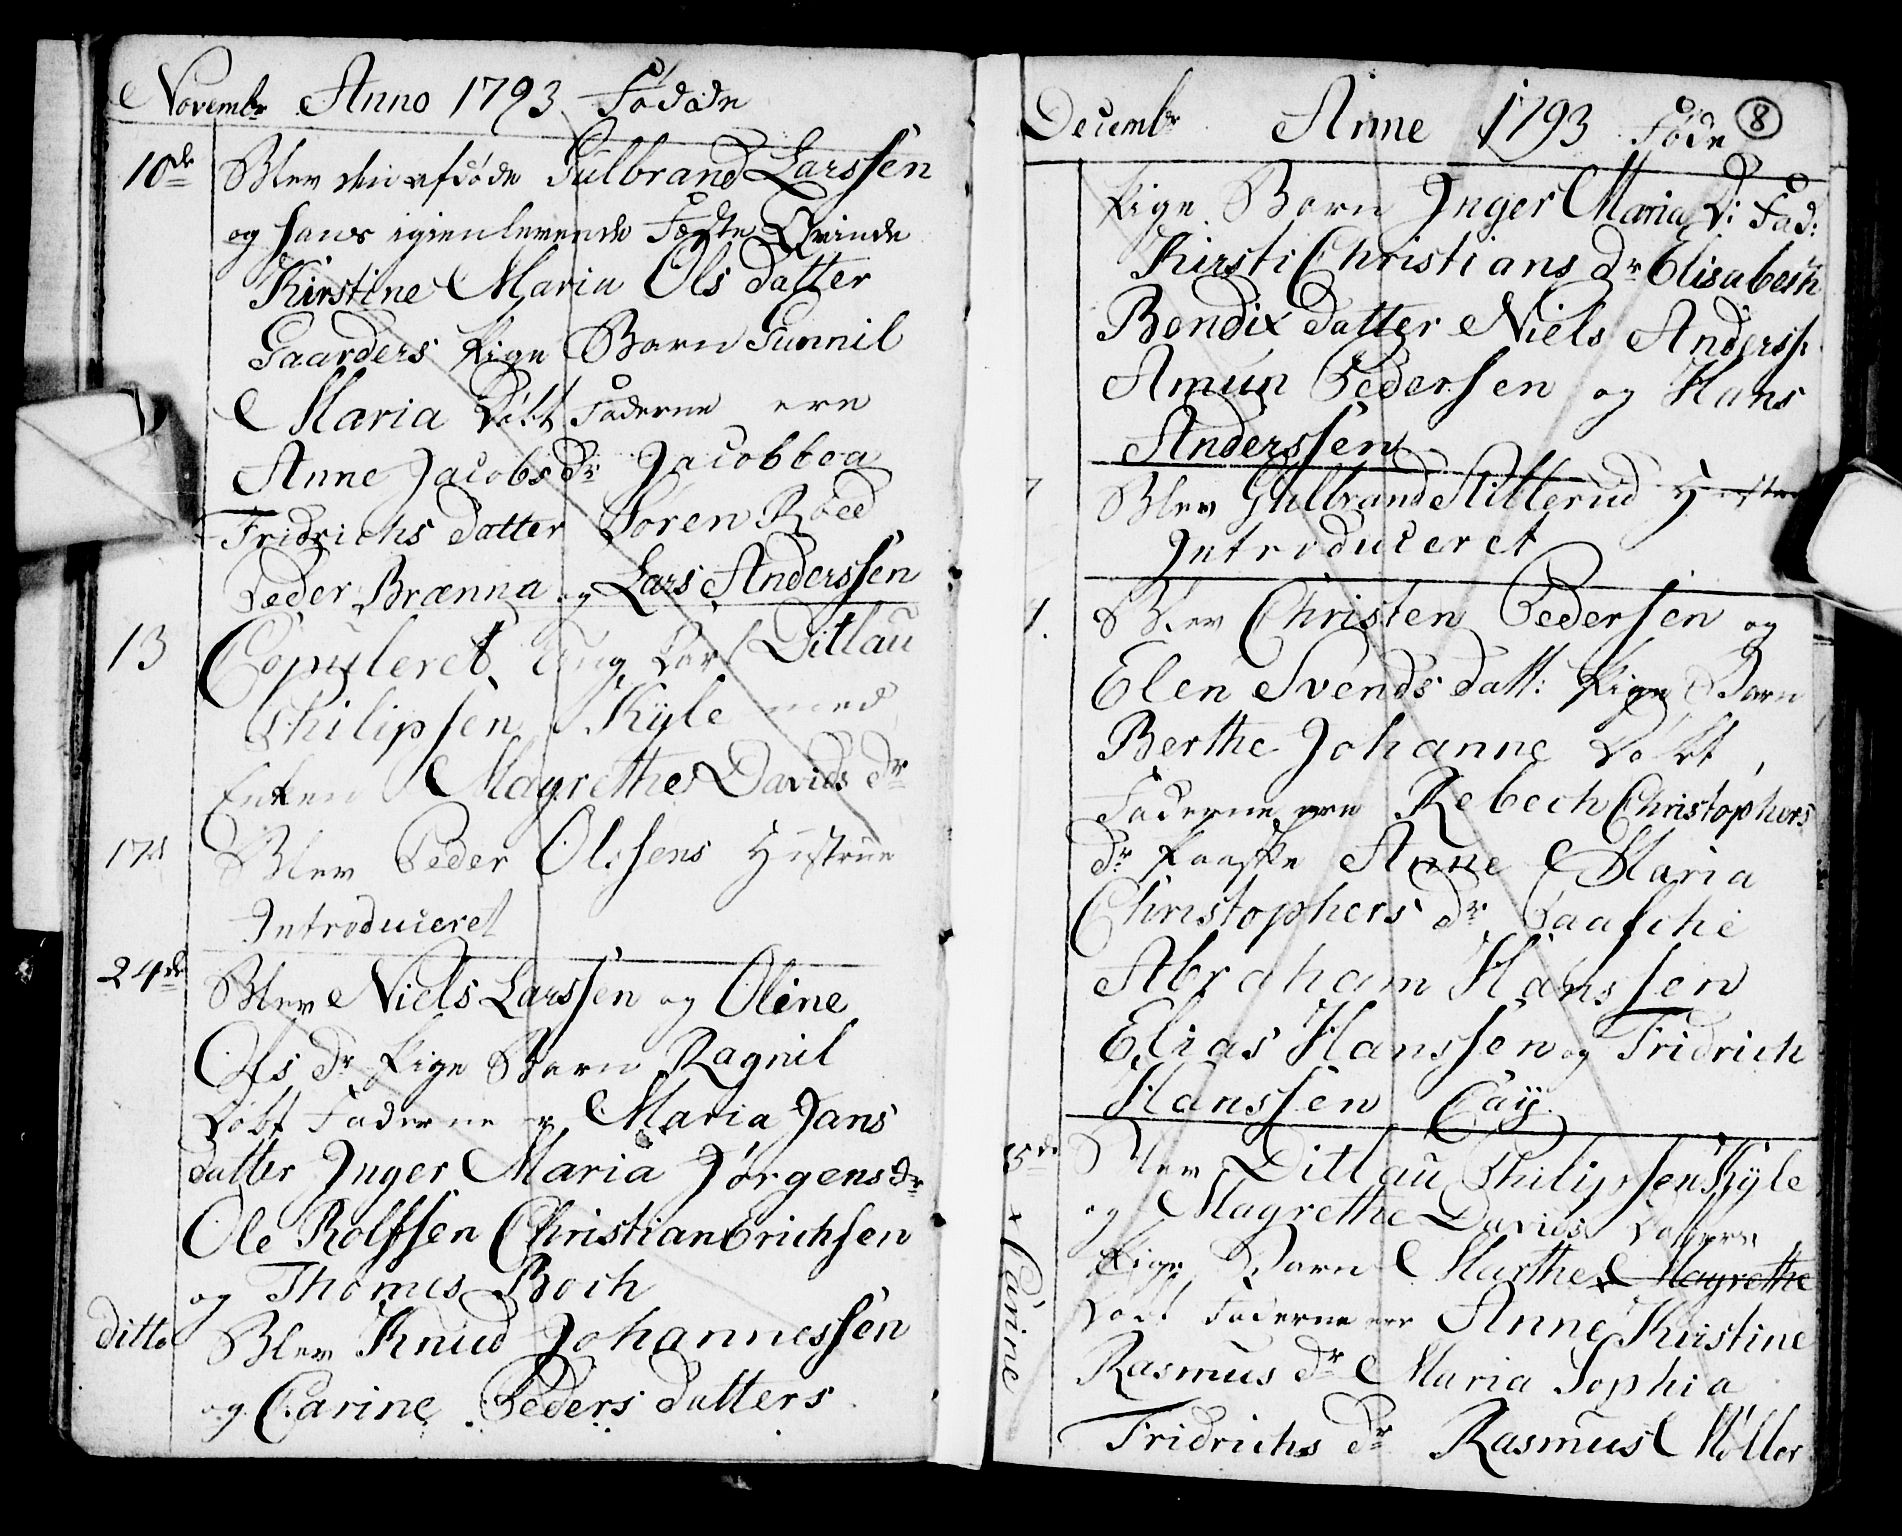 Novembr Anno 1793 Födde
10de Blev den afdöde Gulbrand Larssen
og hans igienlevende Fæste Qvinde
Kirstine Maria Ols datter
Gaarders Pige Barn Gunnil
Maria Döbt Faderne ere
Anne Jacobs dr Jacobboa
Fridrichs datter Sören Röed
Peder Brænna og Lars Anderssen
13 Copuleret Ung Karl Ditlau
Philipsen Kyle med
Enken Magrethe Davids dr
17d Blev Peder Olssens Hustrue
Introduceret
24de Blev Niels Larssen og Oline
Ols dr Pige Barn Ragnil
Döbt Faderne er Maria Jans
datter Inger Maria Jörgens dr
Ole Rolfsen Christian Erichsen
og Thomes Boch
ditto Blev Knud Johannessen
og Carine Peders datters
Decembr Anne 1793 Föde 8
Pige Barn Inger Maria D: Fad:
Kirsti Christians dr Elisabeth
Bendix datter Niels Anderss:
Amun Pedersen og Hans
Anderssen
Blev Gulbrand Slitterud Hustru
Introduceret
1. Blev Christen Pedersen og
Elen Svends datt: Pige Barn
Berthe Johanne Döbt,
Faderne ere Rebech Christophers
dr Paaske Anne Maria
Christophers dr Paasche
Abraham Hanssen
Elias Hanssen og Fridrich
Hanssen Cay.
5de Blev Ditlau Philipsen Kyle
og Magrethe Davids Datters
Pige Barn Marthe x Magrethe
x Carine
Döbt Faderne ere Anne Kirstine
Rasmus dr Maria Sophia
Fridrichs dr Rasmus Möller